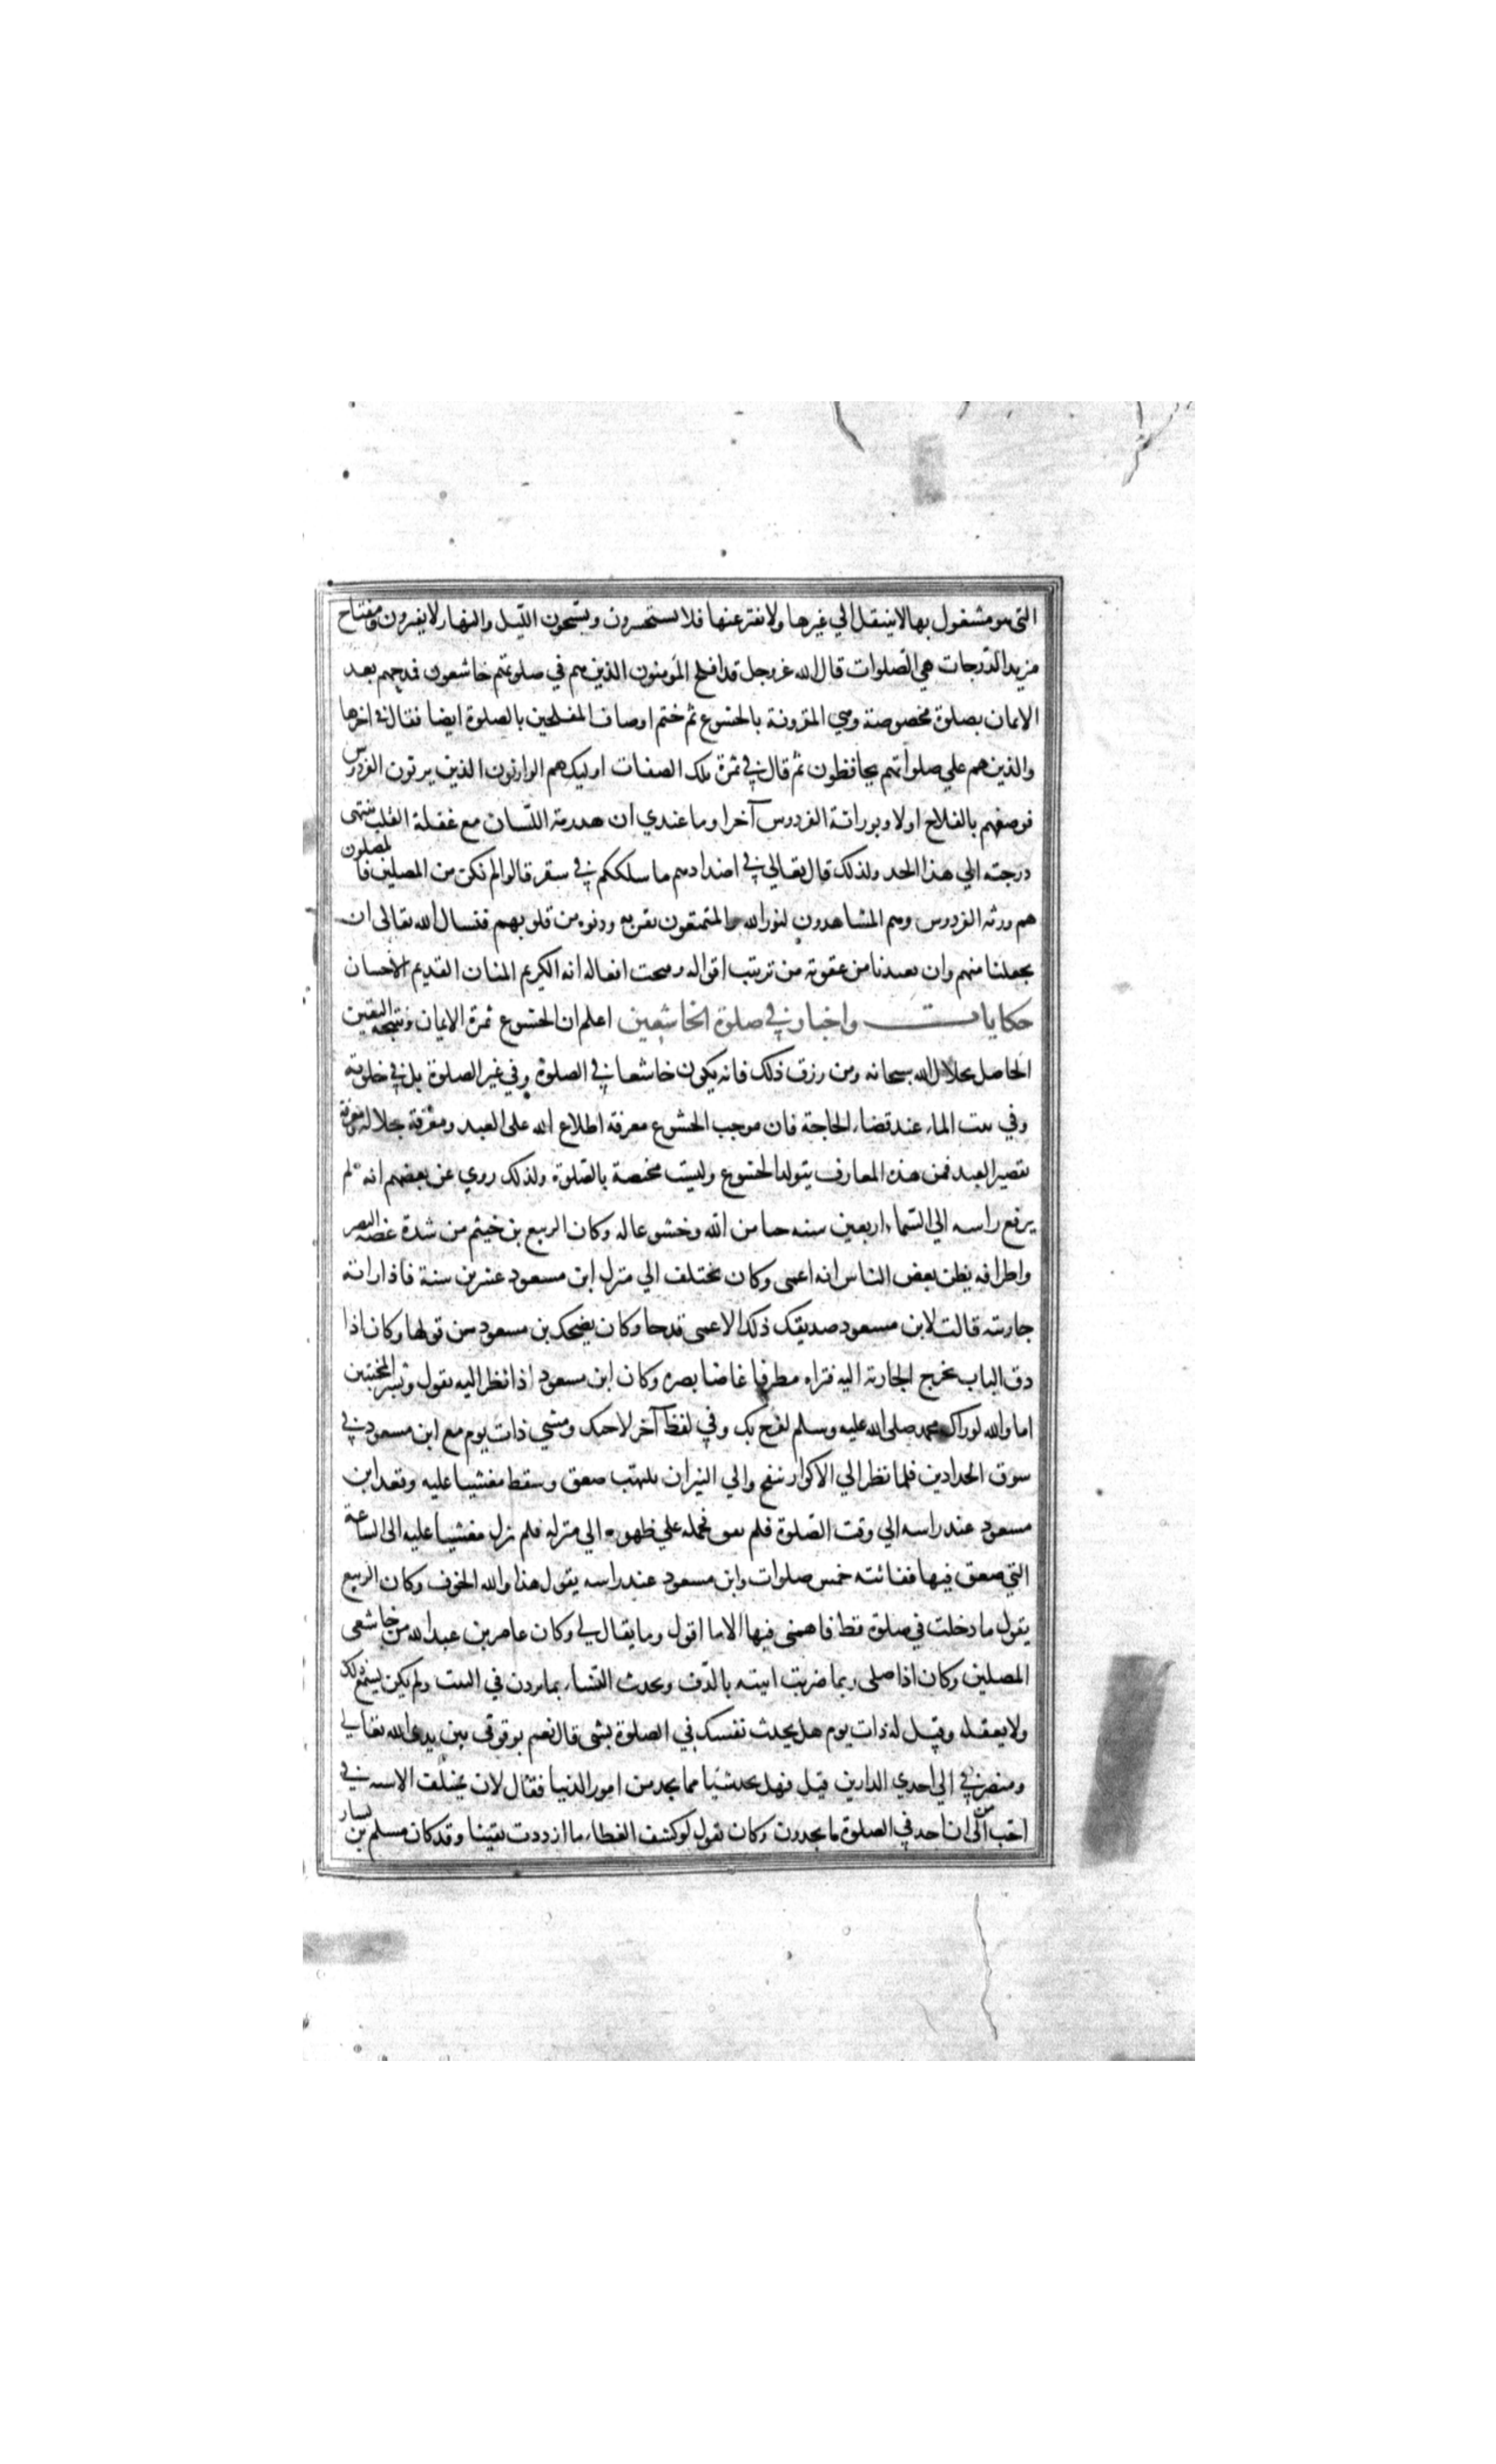 التي هو مشغول بها لا ينتقل الي غيرها ولا يفتر عنها فلا يستحسرون ويسبحون الليل والنهار لا يفترون ومفتاح
مزيد الدرجات هي الصلوات قال الله عز وجل قد افلح المؤمنون الذين هم في صلوتهم خاشعون فمدحهم بعد
الايمان بصلوة مخصوصة وهي المقرونة بالخشوع ثم ختم اوصاف المفلحين بالصلوة ايضا فقال في اخرها
والذين هم علي صلواتهم يحافظون ثم قال في ثمرة تلك الصفات اوليك هم الوارثون الذين يرثون الفردوس
فوصفهم بالفلاح اولا وبوراثة الفردوس آخرا وما عندي ان هذرمة اللسان مع غفلة القلب تنتهى
درجته الي هذا الحد ولذلك قال تعالي في اضدادهم ما سلككم في سقر قالوا لم نكن من المصلين فالمصلون
هم ورثه الفردوس وهم المشاهدون لنور الله والمتمتعون بقربه ودنوه من قلوبهم فنسال الله تعالى ان
يجعلنا منهم وان يعيذنا من عقوبة من تزينت اقواله وقبحت افعاله انه الكريم المنان القديم الاحسان
حكايات واخبار في صلوة الخاشعين اعلم ان الخشوع ثمرة الايمان ونتيجه اليقين
الحاصل بجلال الله سبحانه ومن رزق ذلك فانه يكون خاشعا في الصلوة وفي غير الصلوة بل في خلوته
وفي بيت الماء عند قضاء الحاجة فان موجب الخشوع معرفة اطلاع الله على العبد ومعرفة جلاله ومعرفة
تقصير العبد فمن هذه المعارف يتولد الخشوع وليست مختصة بالصلوة ولذلك روي عن بعضهم انه لم
يرفع راسه الي السماء اربعين سنه حيا من الله وخشوعا له وكان الربيع بن خيثم من شدة غضه البصر
واطرافه يظن بعض الناس انه اعمى وكان يختلف الي منزل ابن مسعود عشرين سنة فاذا راته
جاريته قالت لابن مسعود صديقك ذلك الاعمى قد جا وكان يضحك بن مسعود من قولها وكان اذا
دق الباب تخرج الجارية اليه فتراه مطرقا غاضا بصره وكان ابن مسعود اذا نظر اليه يقول وبشر المخبتين
اما والله لو راك محمد صلى الله عليه وسلم لفرح بك وفي لفظ آخر لاحبك ومشي ذات يوم مع ابن مسعود في
سوق الحدادين فلما نظر الي الاكوار تنفخ والي النيران تلتهب صعق وسقط مغشيا عليه وقعد ابن
مسعود عند راسه الي وقت الصلوة فلم يفق فحمله علي ظهره الي منزله فلم يزل مغشيا عليه الى الساعة
التي صعق فيها ففاتته خمس صلوات وابن مسعود عند راسه يقول هذا والله الخوف وكان الربيع
يقول ما دخلت في صلوة قط فاهمنى فيها الا ما اقول وما يقال لي وكان عامر بن عبد الله من خاشعى
المصلين وكان اذا صلى ربما ضربت ابنته بالدف وتحدث النساء بما يردن في البيت ولم يكن يسمع ذلك
ولا يعقله وقيل له ذات يوم هل تحدث نفسك في الصلوة بشى قال نعم بوقوفى بين يدى الله تعالي
ومنصرفي الي احدي الدارين قيل فهل تجد شيا مما نجد من امور الدنيا فقال لان تختلف الاسنه في
احب الى من ان اجد في الصلوة ما تجدون وكان يقول لو كشف الغطاء ما ازددت يقينا وقد كان مسلم بن يسار